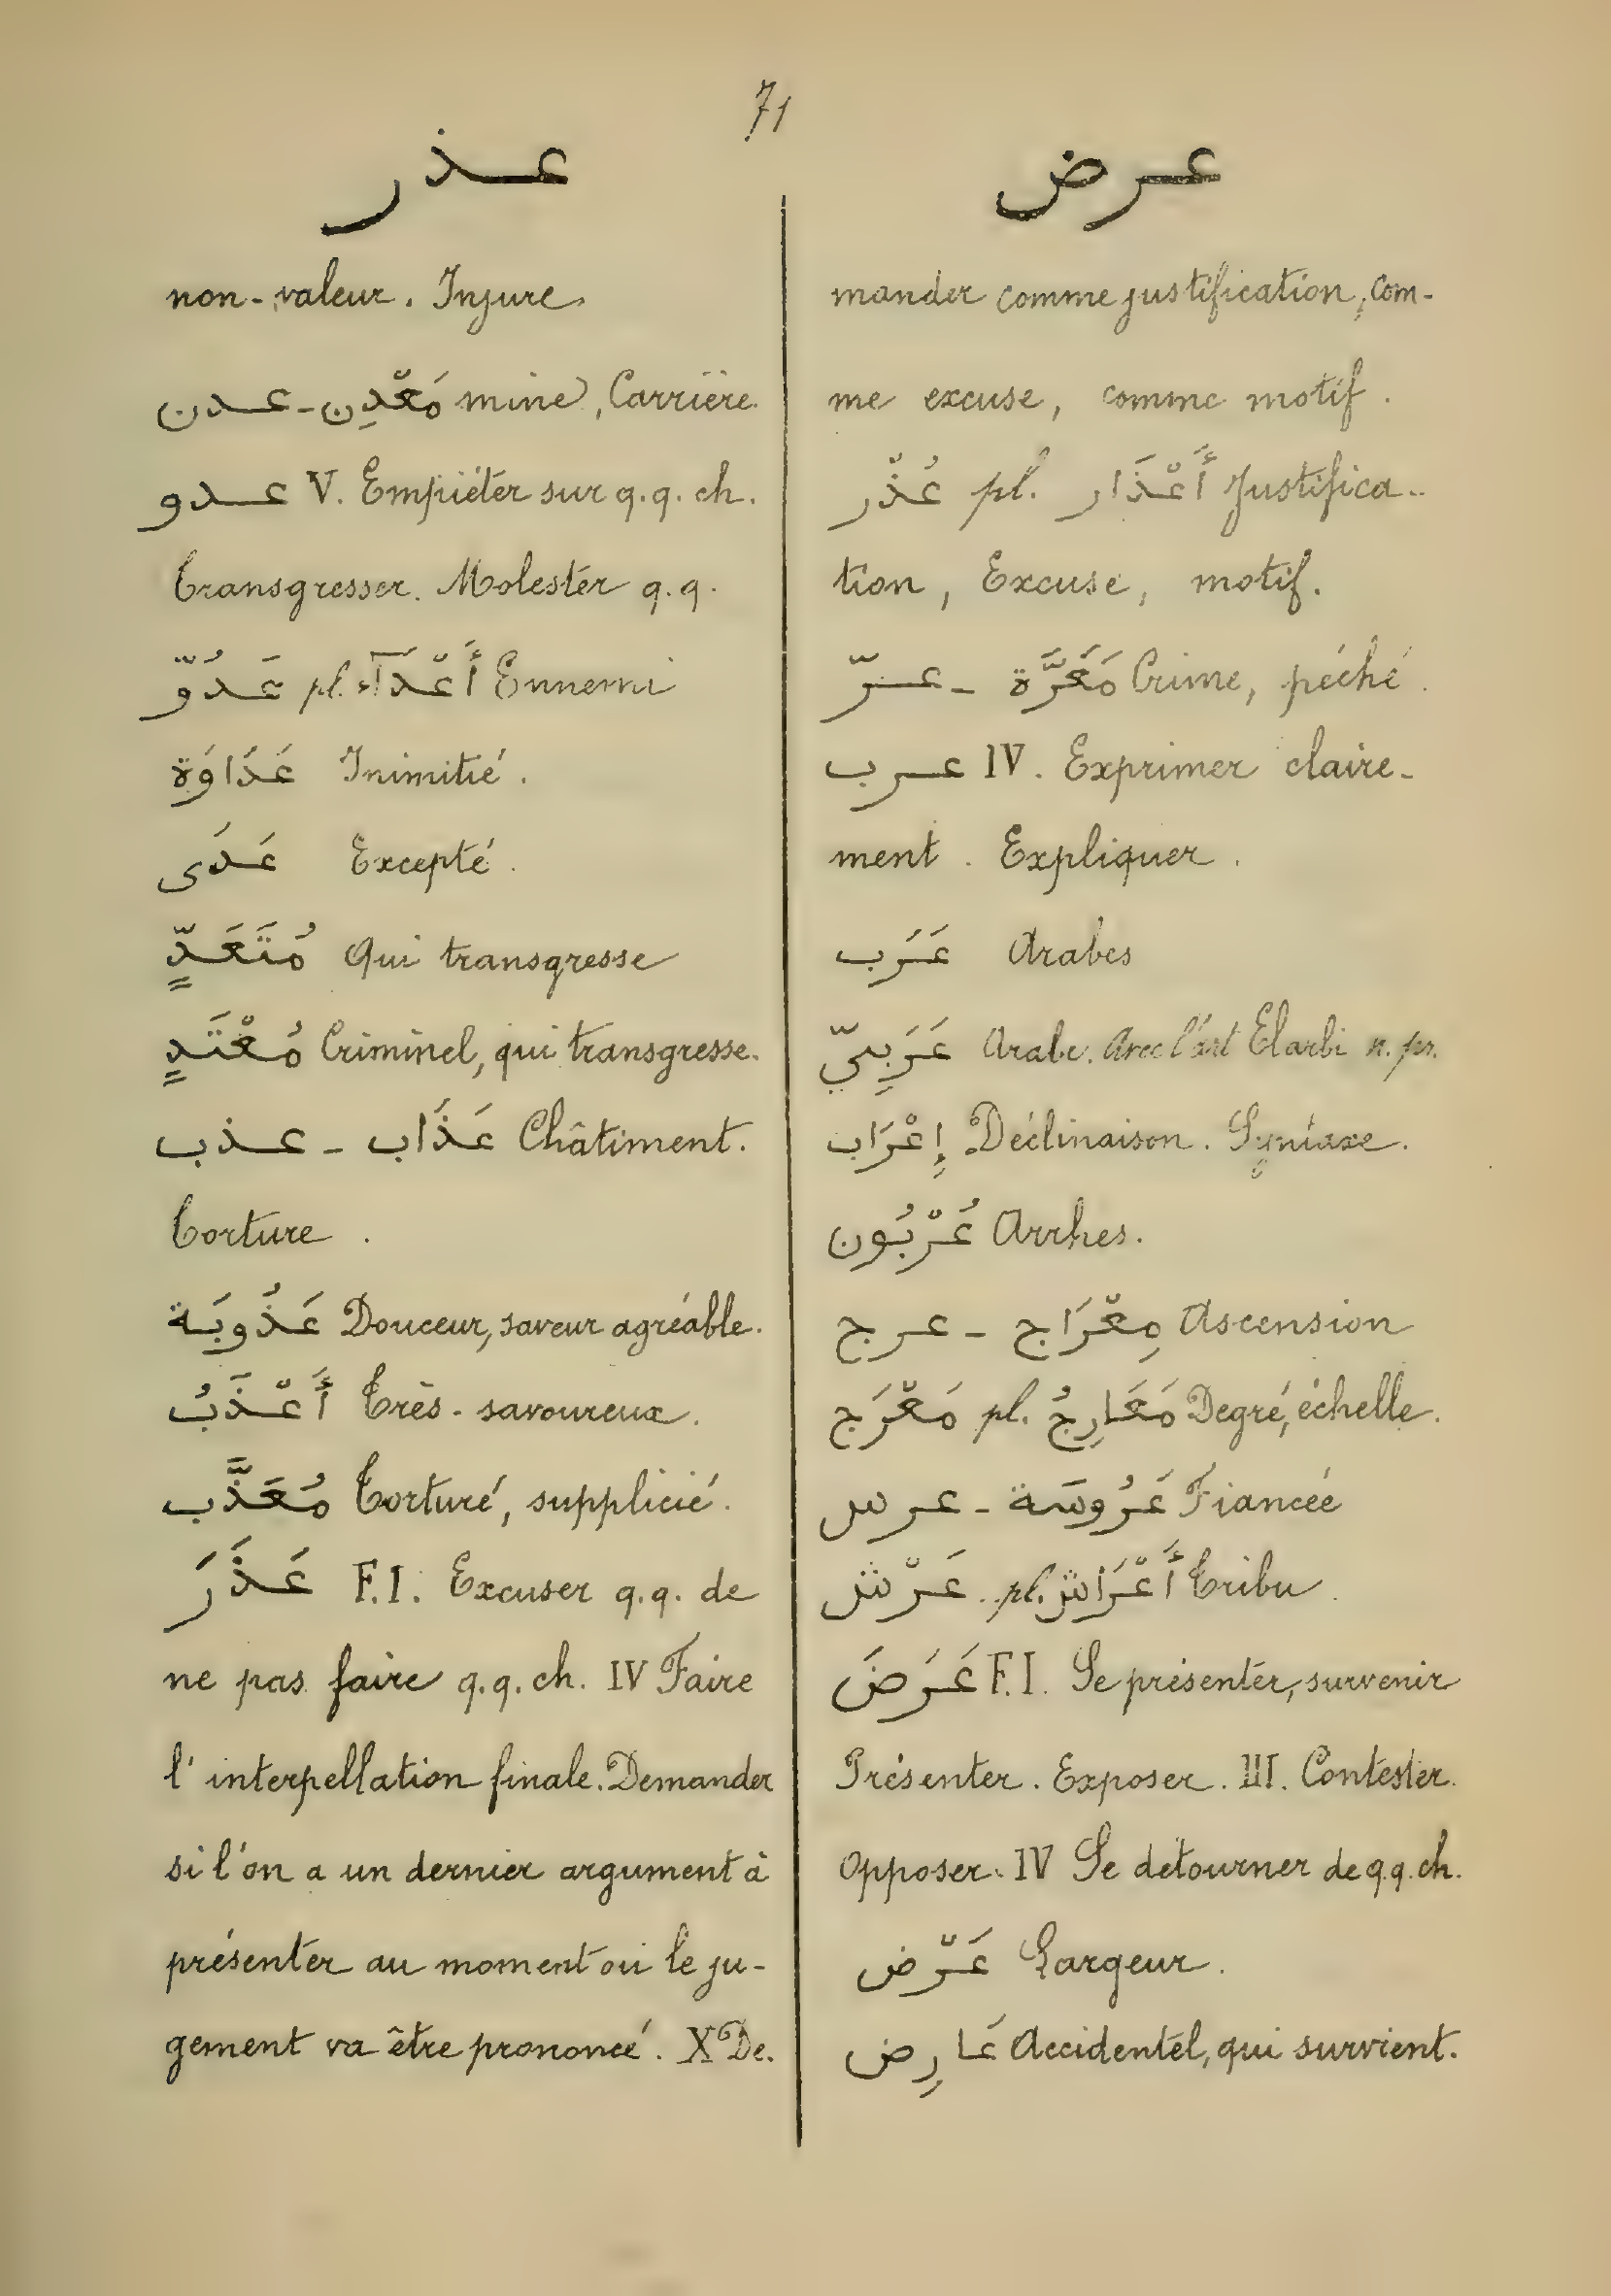 71
عذر
non-valeur. Injure.
عدن - مَعْدِن mine, Carrière.
عدو V. Empiéter sur q.q. ch.
Transgresser. Molester q.q.
عَدُوّ pl. أَعْدَآء Ennemi
عَدَاوَة Inimitié.
عَدَى Excepté.
مُتَعَدٍّ Qui transgresse
مُعْتَدٍ Criminel, qui transgresse.
عذب - عَذَاب Châtiment.
Torture.
عَذُوبَة Douceur, saveur agréable.
أَعْذَبُ Très-savoureux.
مُعَذَّب Torturé, supplicié.
عَذَرَ F.I. Excuser q.q. de
ne pas faire q.q. ch. IV Faire
l'interpellation finale. Demander
si l'on a un dernier argument à
présenter au moment où le ju-
gement va être prononcé. X De.
عرض
mander comme justification, com-
me excuse, comme motif.
عُذْر pl. أَعْذَار Justifica-
tion, Excuse, motif.
عرّ - مَعَرَّة Crime, péché.
عرب IV. Exprimer claire-
ment. Expliquer.
عَرَب Arabes
عَرَبِيّ Arabe. Avec l'art Elarbi n. pr.
إِعْرَاب Déclinaison. Syntaxe.
عُرْبُون Arrhes.
عرج - مِعْرَاج Ascension
مَعْرَج pl. مَعَارِجُ Degré, échelle.
عرس - عَرُوسَة Fiancée
عَرْش pl. أَعْرَاش Tribu.
عَرَضَ F.I. Se présenter, survenir
Présenter. Exposer. III. Contester.
Opposer. IV Se détourner de q.q. ch.
عَرْض Largeur.
عَارِض Accidentel, qui survient.